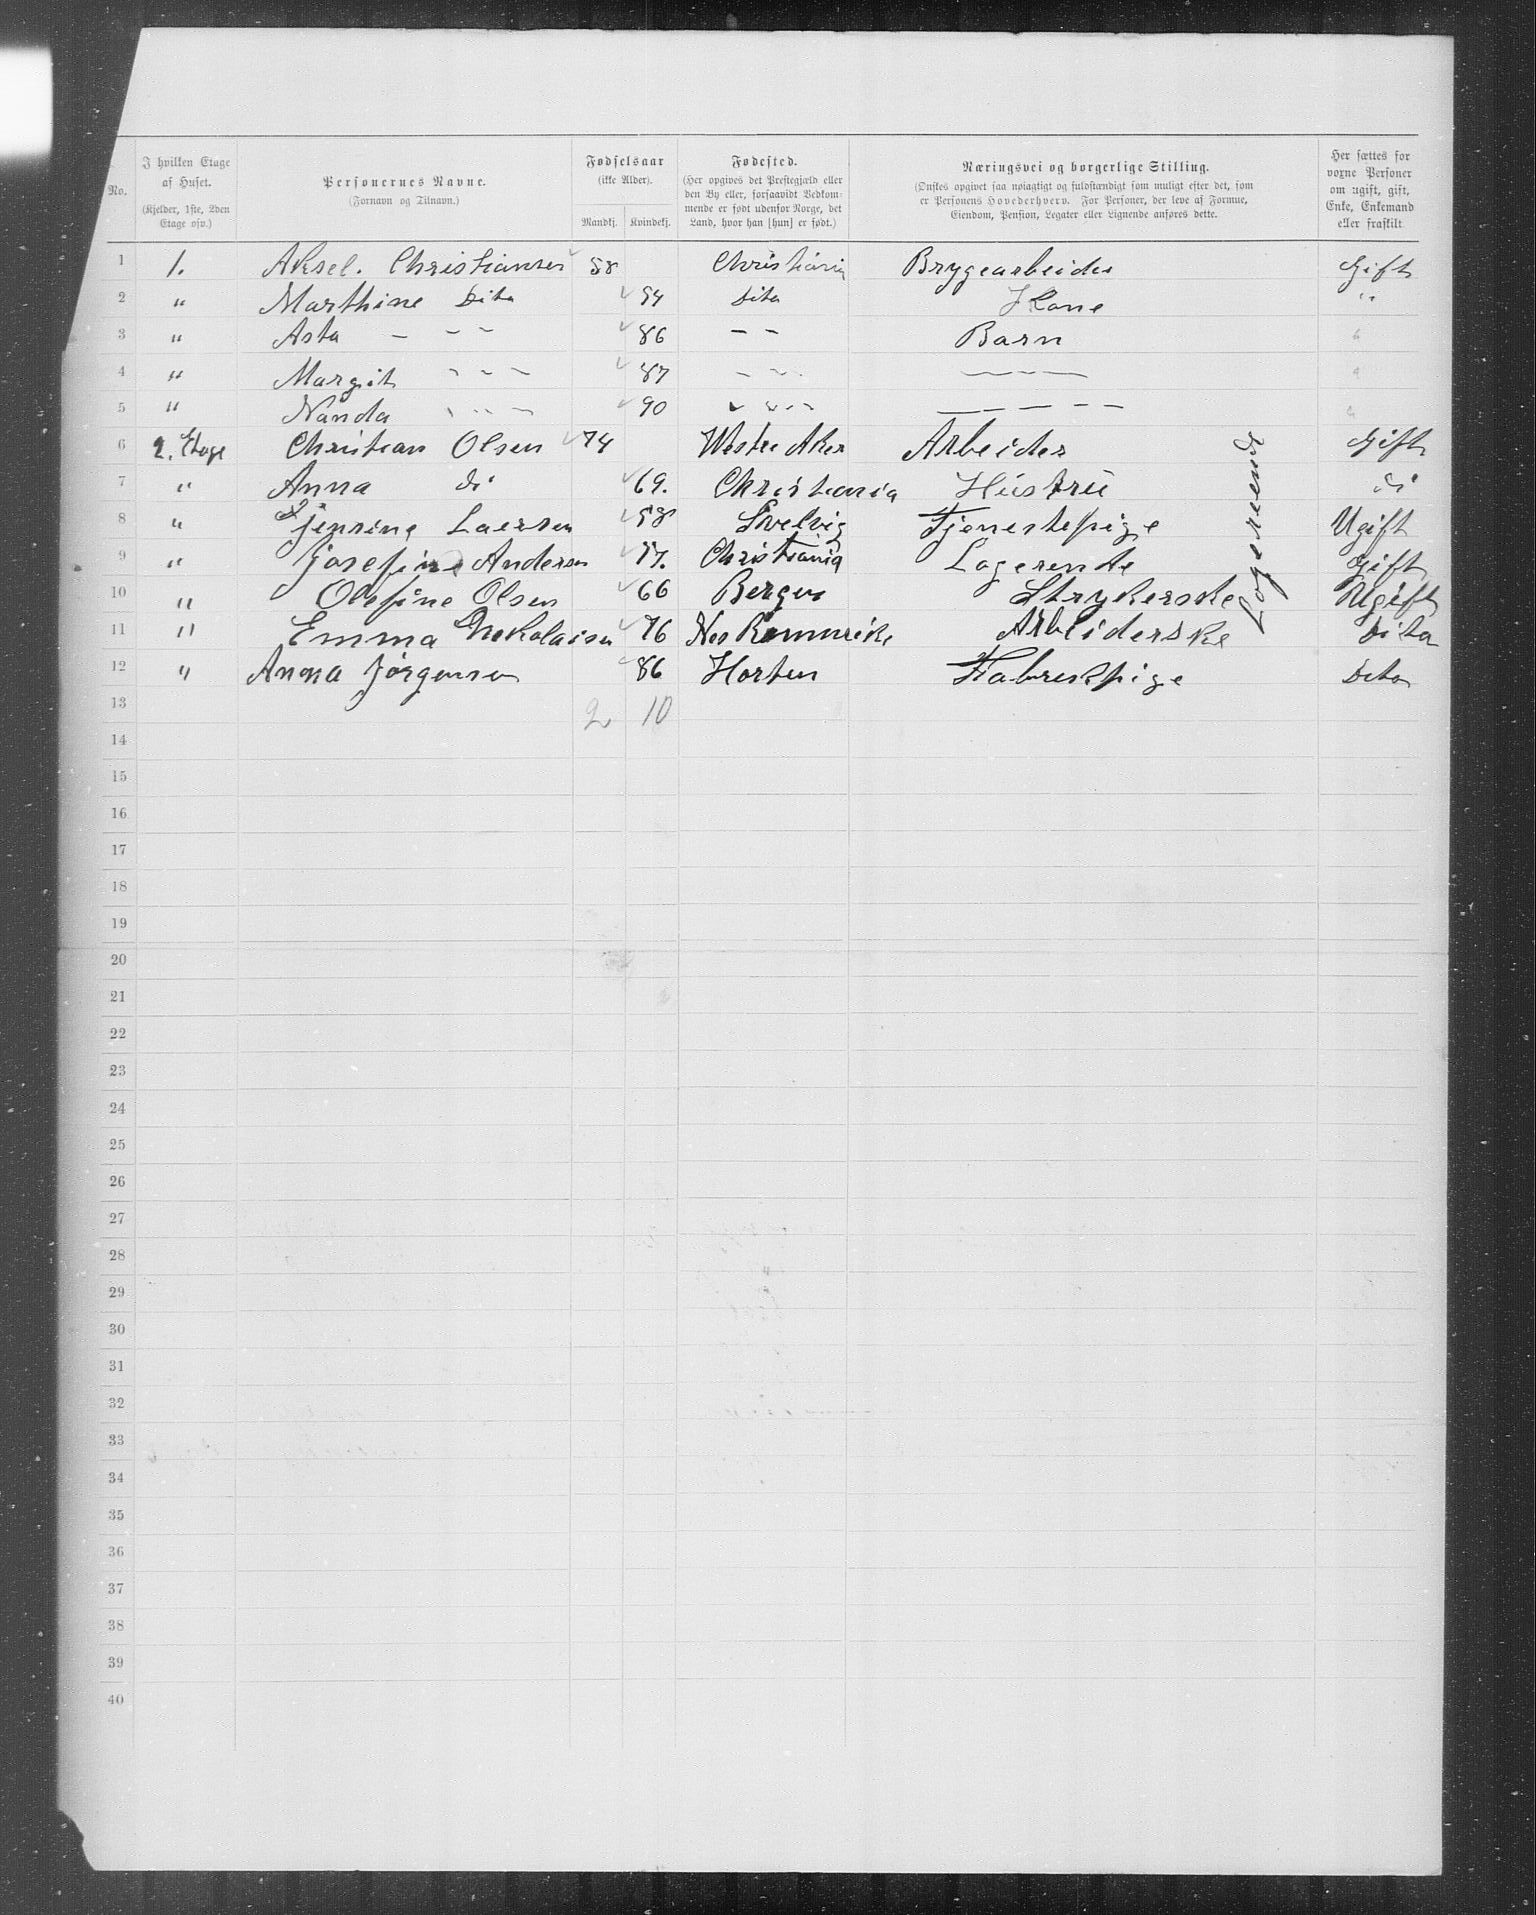 No. | I hvilken Etage af Huset. (Kjelder, 1ste, 2den Etage osv.) | Personernes Navne. (Fornavn og Tilnavn.) | Fødselsaar (ikke Alder). Mandkj. Kvindekj. | Fødested. (Her opgives det Prestegjæld eller den By eller, forsaavidt Vedkommende er født udenfor Norge, det Land, hvor han [hun] er født.) | Næringsvei og borgerlige Stilling. (Ønskes opgivet saa nøiagtigt og fuldstændigt som muligt efter det, som er Personens Hovederhverv. For Personer, der leve af Formue, Eiendom, Pension, Legater eller Lignende anføres dette. | Her sættes for voxne Personer om ugift, gift, Enke, Enkemand eller fraskilt
1 1. Aksel. Christiansen 58 Christiania Brygearbeider Gift
2 " Marthine Dito 54 Dito Kone "
3 " Asta — — — 86 — — Barn "
4 " Margit — — — 87 — — — — — — "
5 " Nanda — — — 90 — — — — — — — — "
6 2. Etage Christian Olsen 74 Westre Aker Arbeider Gift
7 " Anna do 69. Christiania Hüstrü do
8 " Laersen 58 Svelvig Tjenestepige Ugift
9 " Josefine Andersen 57. Christiania Logerende Gift
10 " Olefine Olsen 66 Bergen Strykerske Ugift
11 " Emma Nekolaisen 76 Nes Rommerike Arbeiderske Dito
12 " Anna Jørgensen 86 Horten Fabrekpige Dito
Logerende
13 2 10
14
15
16
17
18
19
20
21
22
23
24
25
26
27
28
29
30
31
32
33
34
35
36
37
38
39
40